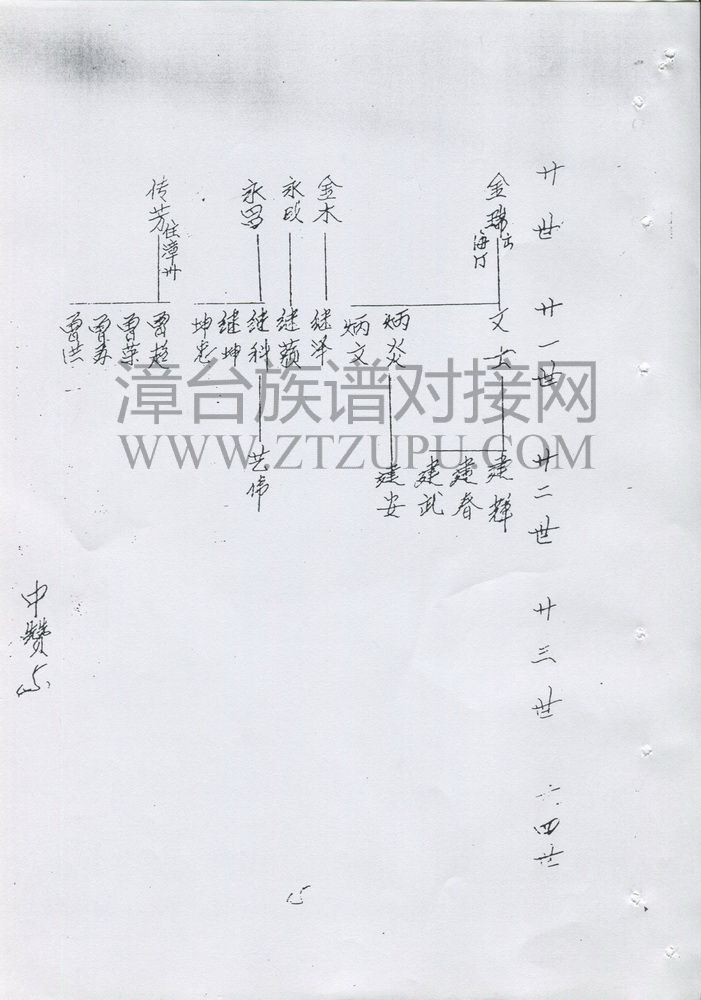 廿世
廿一世
廿二世
廿三世
廿四世
金瑞
海
金木
永政
永昌
传芳 住漳州
文
炳炎
炳文
继泽
继颖
继科
继坤
坤忠
曾超
曾荣
曾寿
曾洪
建辉
建春
建武
建安
艺伟
中赞
15
漳台族谱对接网
WWW.ZTZUPU.COM